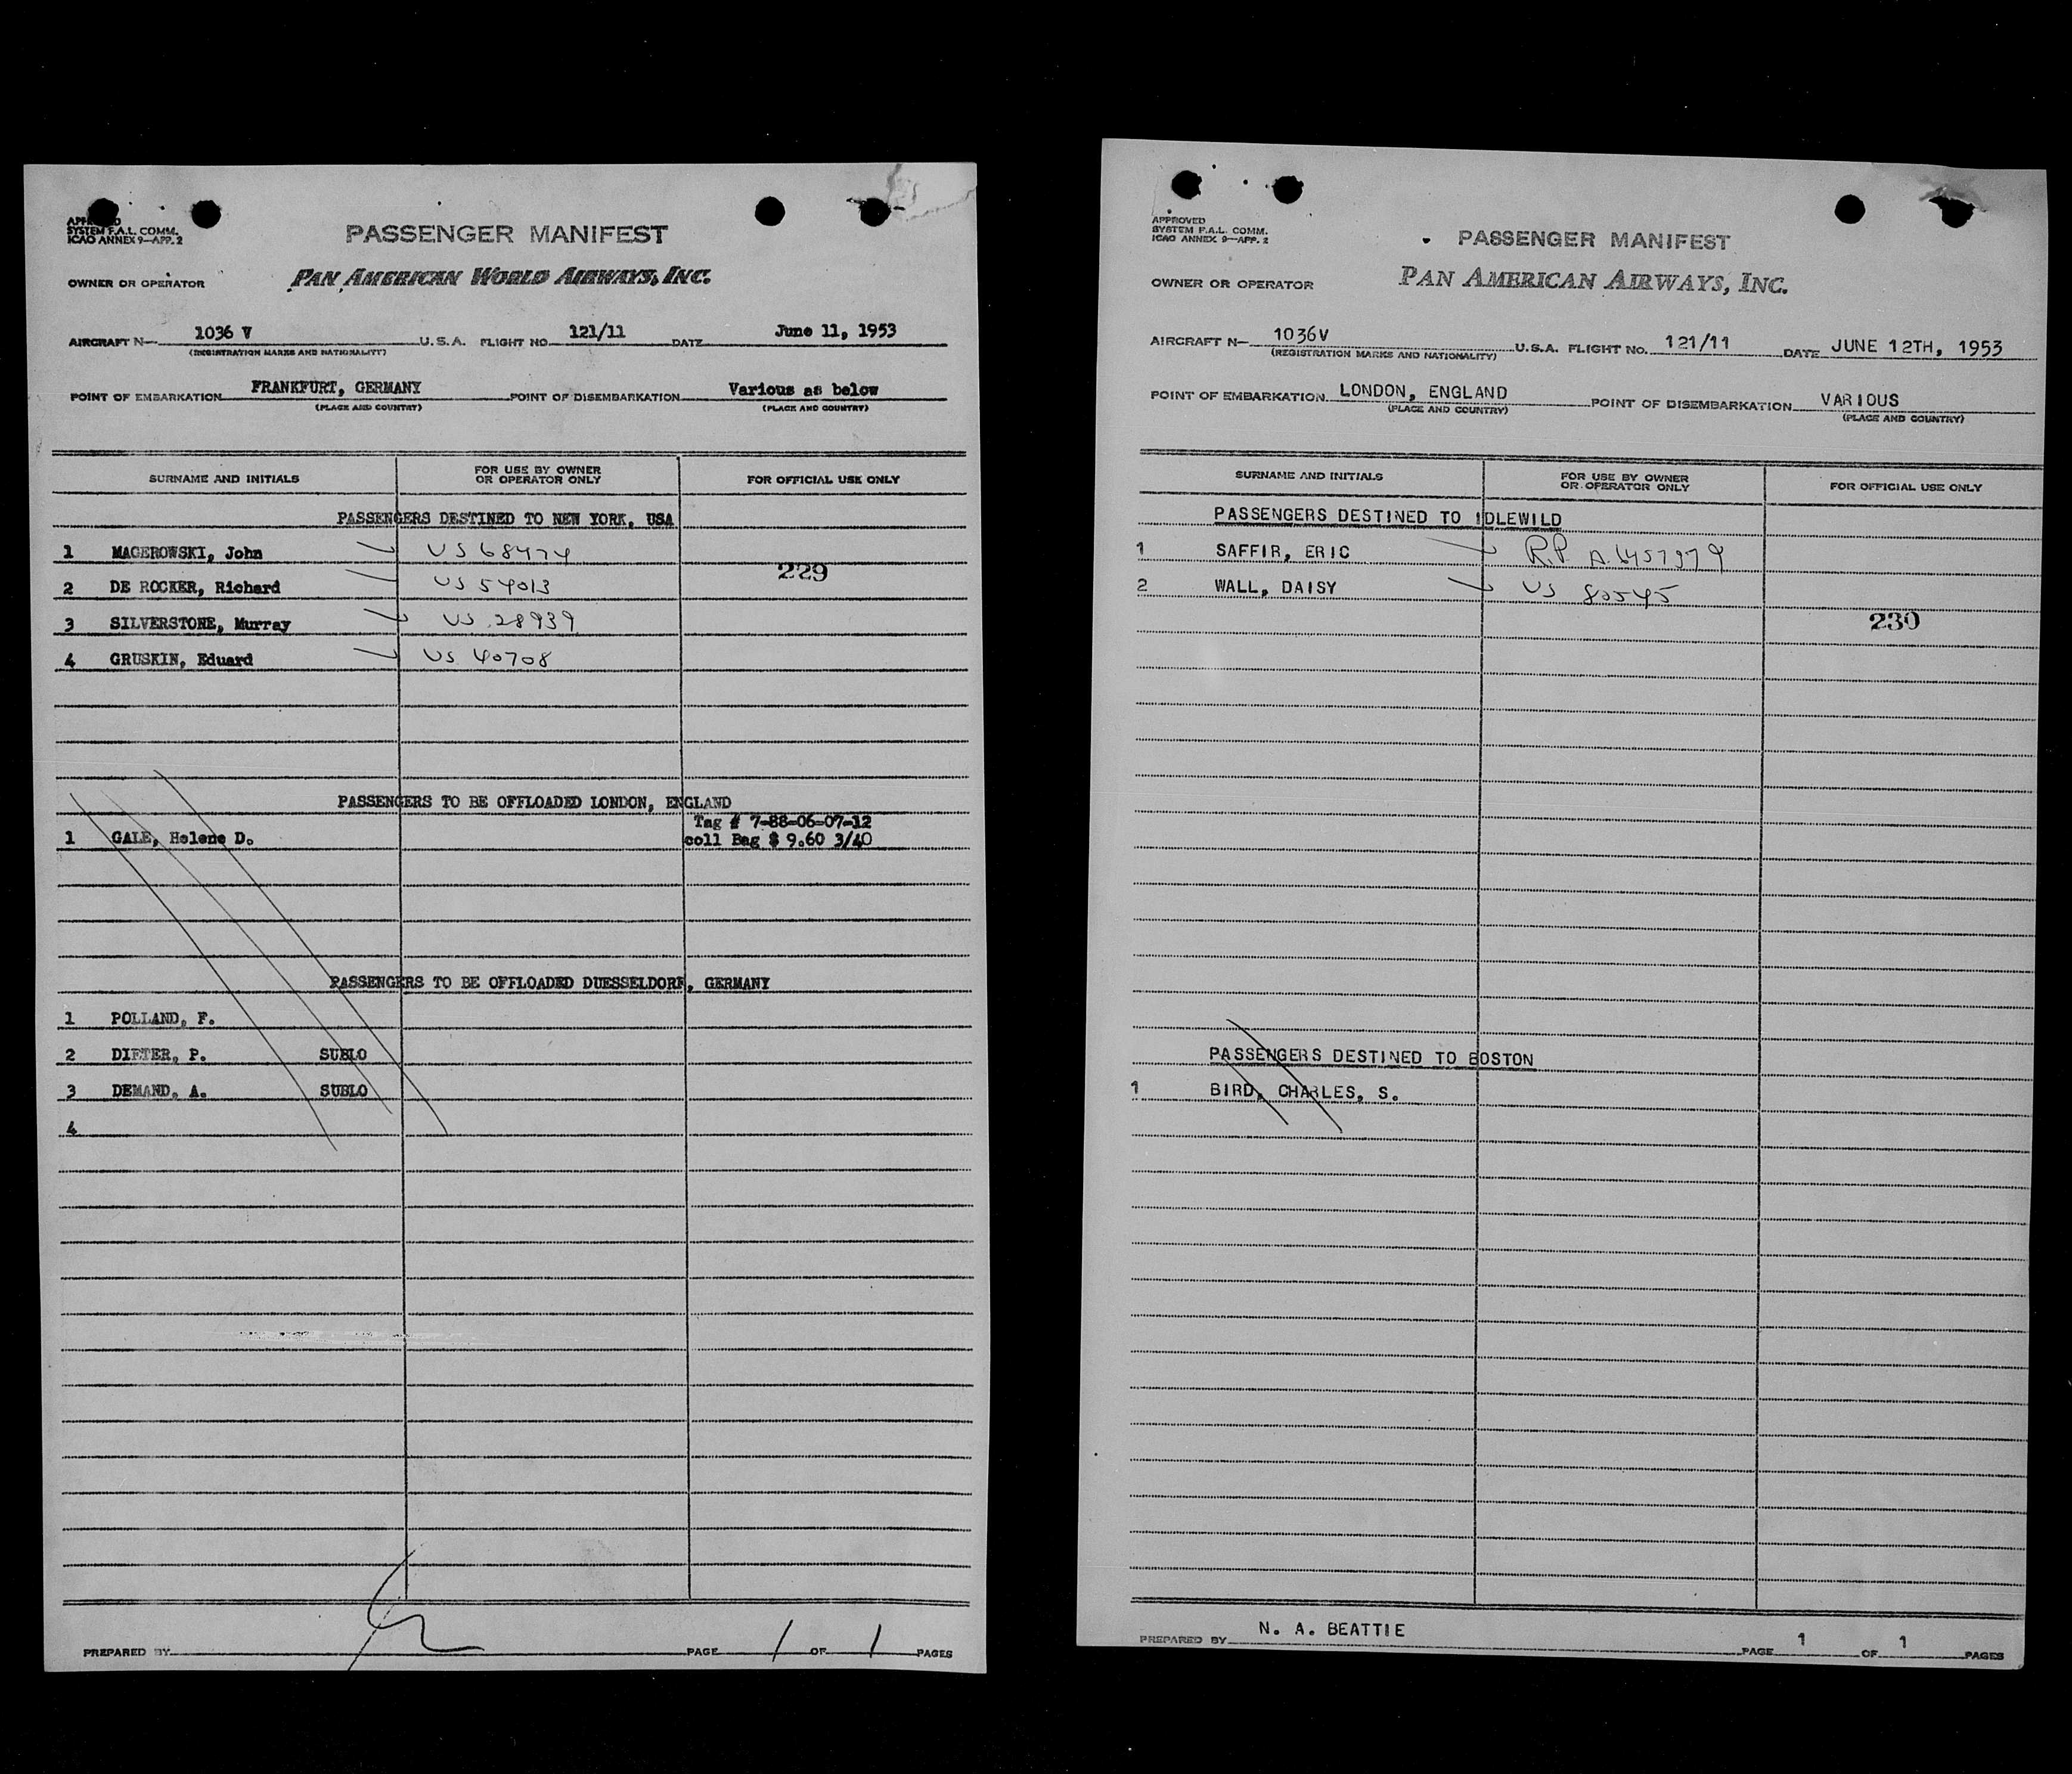 APPROVED
SYSTEM F.A.L. COMM.
ICAO ANNEX 9—APP. 2
PASSENGER MANIFEST
OWNER OR OPERATOR PAN AMERICAN WORLD AIRWAYS, INC.
AIRCRAFT N— 1036 V U.S.A. FLIGHT NO. 121/11 DATE June 11, 1953
(REGISTRATION MARKS AND NATIONALITY)
POINT OF EMBARKATION FRANKFURT, GERMANY POINT OF DISEMBARKATION Various as below
(PLACE AND COUNTRY) (PLACE AND COUNTRY)
SURNAME AND INITIALS FOR USE BY OWNER OR OPERATOR ONLY FOR OFFICIAL USE ONLY
PASSENGERS DESTINED TO NEW YORK, USA
1 MAGEROWSKI, John US 68474
229
2 DE ROCKER, Richard US 54013
3 SILVERSTONE, Murray US 28939
4 GRUSKIN, Eduard US 40708
PASSENGERS TO BE OFFLOADED LONDON, ENGLAND
Tag # 7-88-06-07-12
1 GALE, Helene D. coll Bag $ 9.60 3/40
PASSENGERS TO BE OFFLOADED DUESSELDORF, GERMANY
1 POLLAND, F.
2 DIETER, P. SUBLO
3 DEMAND, A. SUBLO
4
PREPARED BY PAGE 1 OF 1 PAGES
APPROVED
SYSTEM F.A.L. COMM.
ICAO ANNEX 9—APP. 2
PASSENGER MANIFEST
OWNER OR OPERATOR PAN AMERICAN AIRWAYS, INC.
AIRCRAFT N— 1036V U.S.A. FLIGHT NO. 121/11 DATE JUNE 12TH, 1953
(REGISTRATION MARKS AND NATIONALITY)
POINT OF EMBARKATION LONDON, ENGLAND POINT OF DISEMBARKATION VARIOUS
(PLACE AND COUNTRY) (PLACE AND COUNTRY)
SURNAME AND INITIALS FOR USE BY OWNER OR OPERATOR ONLY FOR OFFICIAL USE ONLY
PASSENGERS DESTINED TO IDLEWILD
1 SAFFIR, ERIC R.P. A.6457379
2 WALL, DAISY US 80545
230
PASSENGERS DESTINED TO BOSTON
1 BIRD, CHARLES, S.
PREPARED BY N. A. BEATTIE PAGE 1 OF 1 PAGES